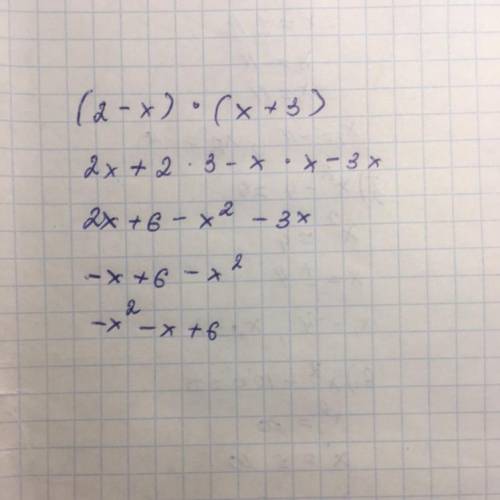 (2 - x) · (x + 3)
2x + 2 · 3 - x · x - 3x
2x + 6 - x² - 3x
-x + 6 - x²
-x² - x + 6